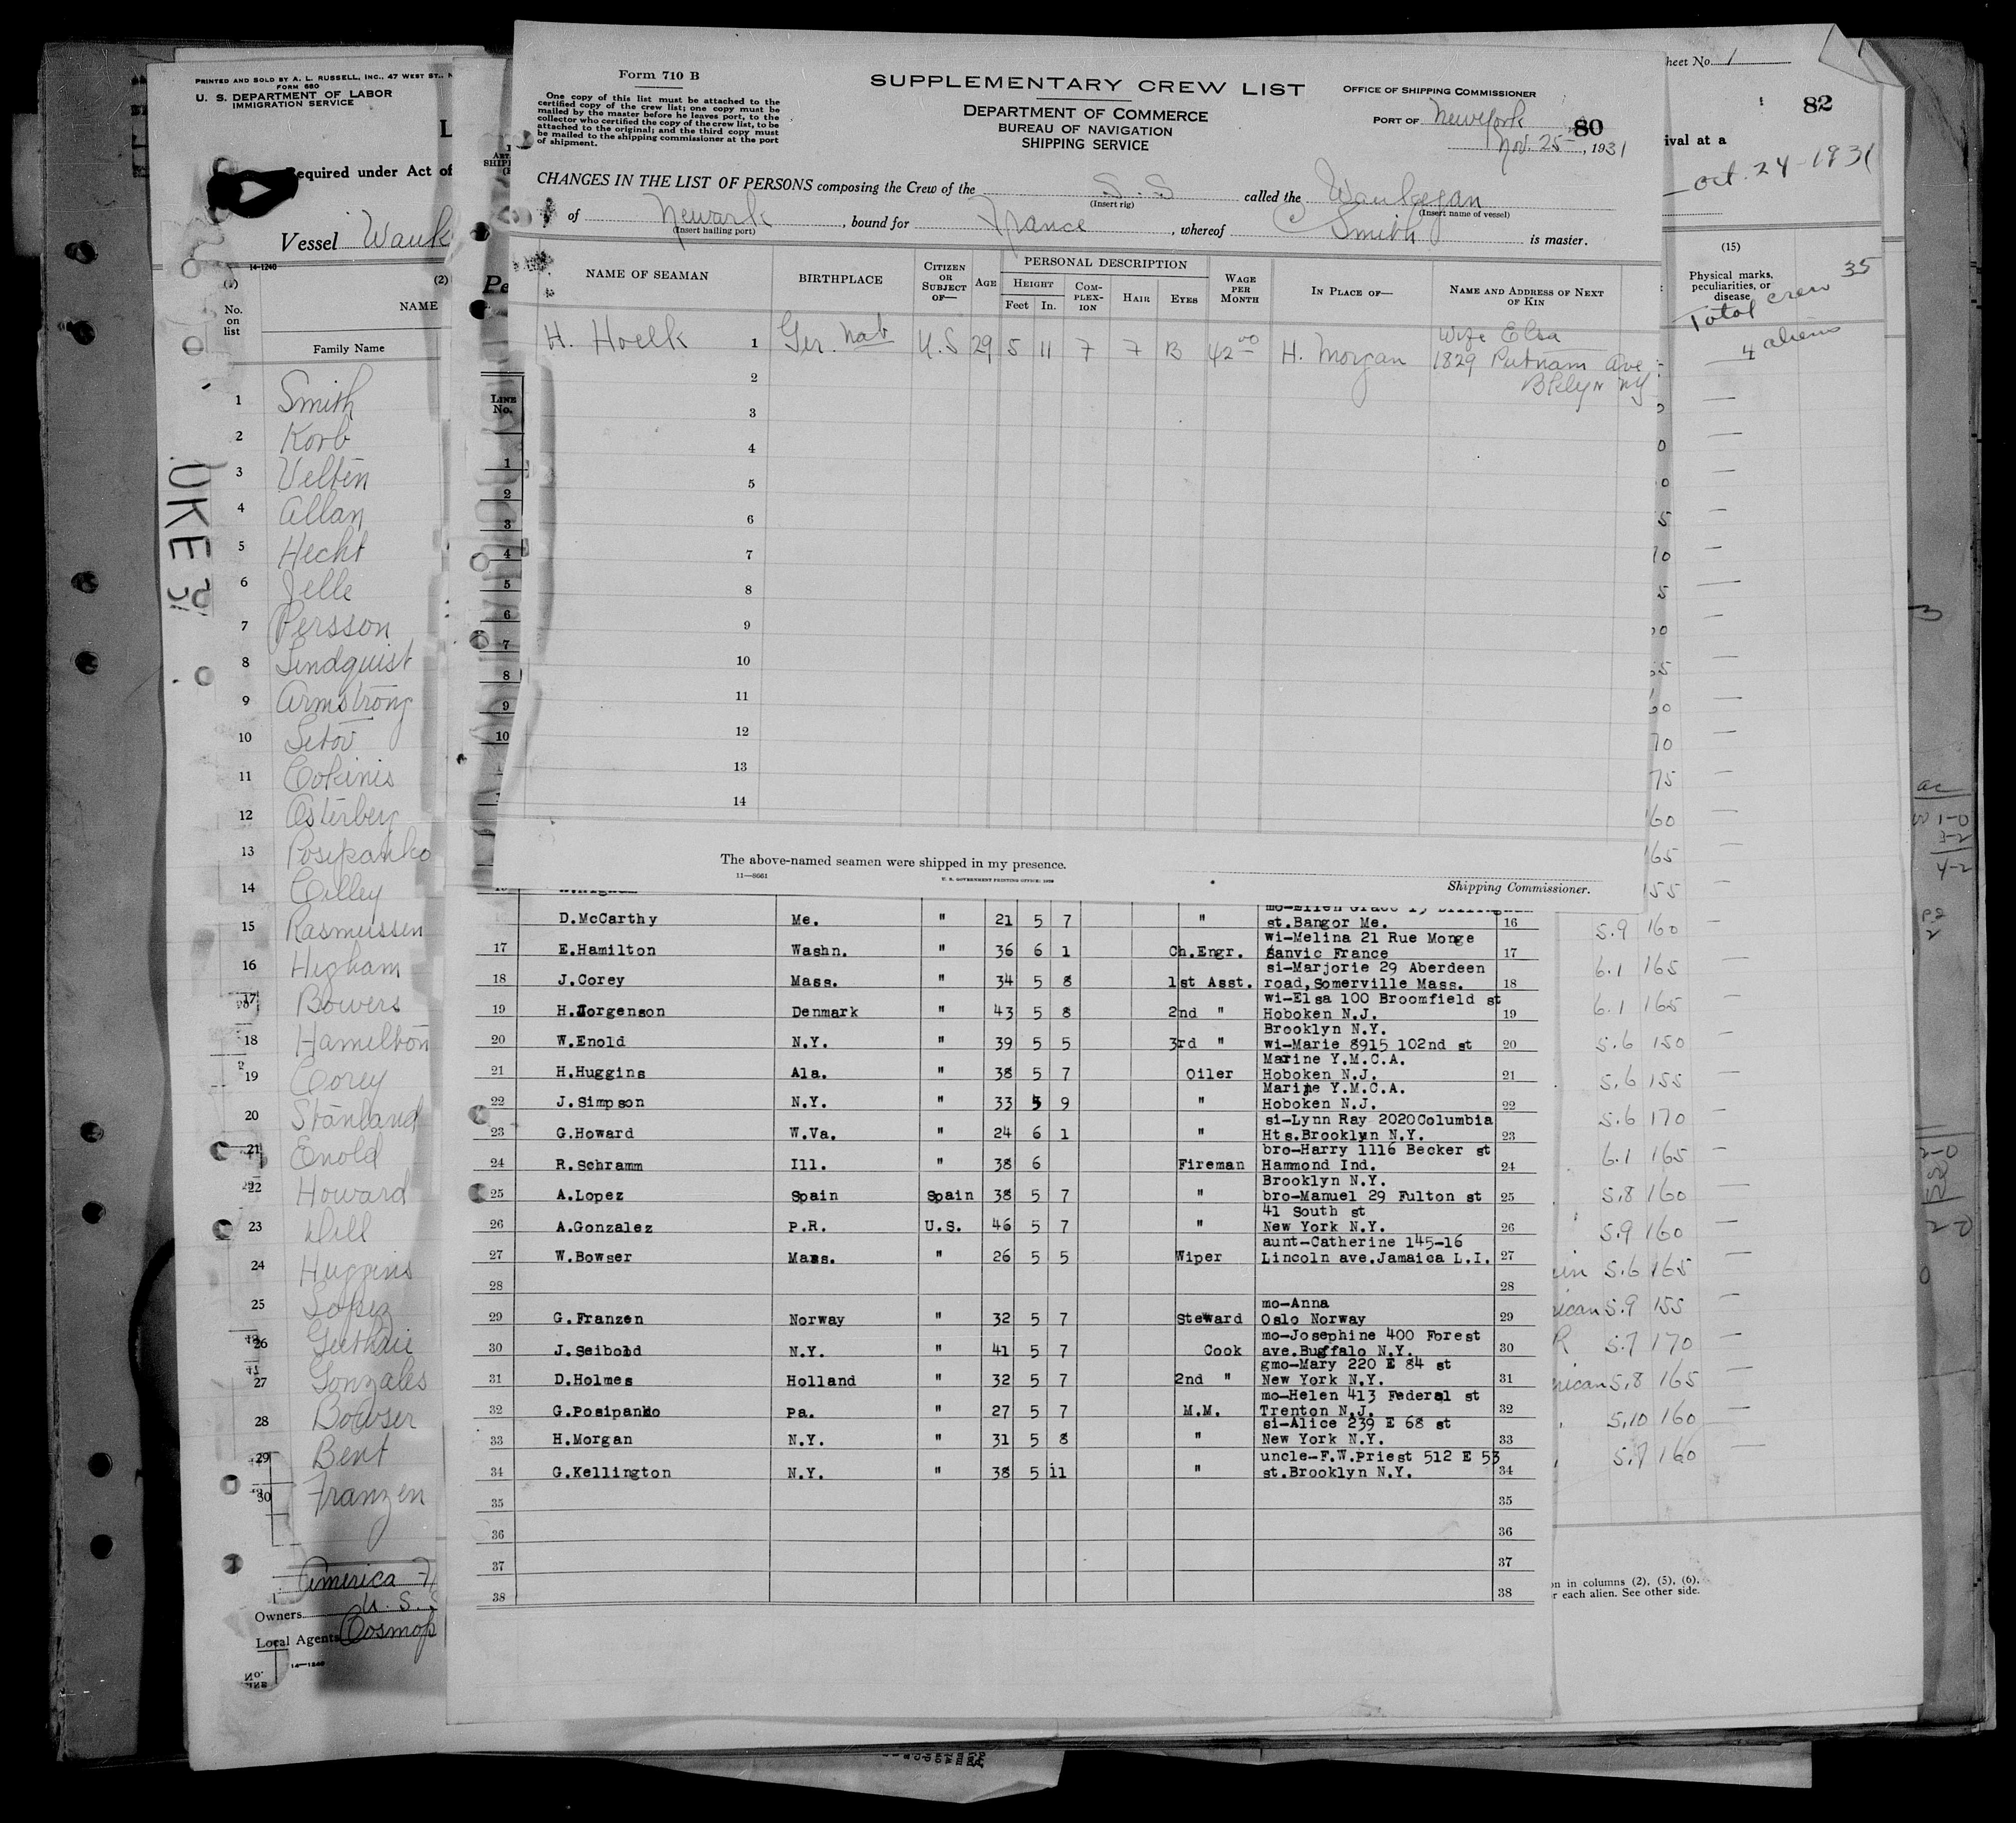 PRINTED AND SOLD BY A. L. RUSSELL, INC., 47 WEST ST.,
FORM 680
U. S. DEPARTMENT OF LABOR
IMMIGRATION SERVICE
Required under Act of
Vessel Wauk
14-1240
(2)
No. on list
NAME
Family Name
1 Smith
2 Korb
3 Velten
4 Allan
5 Hecht
6 Jelle
7 Persson
8 Lindquist
9 Armstrong
10
11 Cokinis
12 Osterberg
13 Posipanko
14 Cilley
15 Rasmussen
16 Higham
17 Bowers
18 Hamilton
19 Corey
20 Stanland
21 Enold
22 Howard
23 Dill
24 Huggins
25 Lopez
26 Guthrie
27 Gonzales
28 Bowser
29 Bent
30 Franzen
America
Owners U. S.
Local Agents Cosmop
14-1240
Form 710 B
One copy of this list must be attached to the
certified copy of the crew list; one copy must be
mailed by the master before he leaves port, to the
collector who certified the copy of the crew list, to be
attached to the original; and the third copy must
be mailed to the shipping commissioner at the port
of shipment.
SUPPLEMENTARY CREW LIST
DEPARTMENT OF COMMERCE
BUREAU OF NAVIGATION
SHIPPING SERVICE
OFFICE OF SHIPPING COMMISSIONER
PORT OF New York
80
Nov. 25, 1931
CHANGES IN THE LIST OF PERSONS composing the Crew of the S.S called the Waukegan
(Insert rig) (Insert name of vessel)
of Newark, bound for France, whereof C Smith is master.
(Insert hailing port)
NAME OF SEAMAN BIRTHPLACE CITIZEN OR SUBJECT OF— AGE PERSONAL DESCRIPTION HEIGHT Feet In. COMPLEXION HAIR EYES WAGE PER MONTH IN PLACE OF— NAME AND ADDRESS OF NEXT OF KIN
Wife Elsa
H. Hoelk 1 Ger. Nat U.S 29 5 11 7 7 B 42 00 H. Morgan 1829 Putnam Ave
Bklyn NY
2
3
4
5
6
7
8
9
10
11
12
13
14
The above-named seamen were shipped in my presence.
11—8661
U. S. GOVERNMENT PRINTING OFFICE: 1928
Shipping Commissioner.
LINE No.
1
2
3
4
5
6
7
8
9
10
D.McCarthy Me. " 21 5 7 " st.Bangor Me. 16
wi-Melina 21 Rue Monge
17 E.Hamilton Washn. " 36 6 1 Ch.Engr. Sanvic France 17
si-Marjorie 29 Aberdeen
18 J.Corey Mass. " 34 5 8 1st Asst. road,Somerville Mass. 18
wi-Elsa 100 Broomfield st
19 H.Jorgenson Denmark " 43 5 8 2nd " Hoboken N.J. 19
Brooklyn N.Y.
20 W.Enold N.Y. " 39 5 5 3rd " wi-Marie 8915 102nd st 20
Marine Y.M.C.A.
21 H.Huggins Ala. " 38 5 7 Oiler Hoboken N.J. 21
Marine Y.M.C.A.
22 J.Simpson N.Y. " 33 5 9 " Hoboken N.J. 22
si-Lynn Ray 2020Columbia
23 G.Howard W.Va. " 24 6 1 " Hts.Brooklyn N.Y. 23
bro-Harry 1116 Becker st
24 R.Schramm Ill. " 38 6 Fireman Hammond Ind. 24
Brooklyn N.Y.
25 A.Lopez Spain Spain 38 5 7 " bro-Manuel 29 Fulton st 25
41 South st
26 A.Gonzalez P.R. U.S. 46 5 7 " New York N.Y. 26
aunt-Catherine 145-16
27 W.Bowser Mass. " 26 5 5 Wiper Lincoln ave.Jamaica L.I. 27
28 28
mo-Anna
29 G.Franzen Norway " 32 5 7 Steward Oslo Norway 29
mo-Josephine 400 Forest
30 J.Seibold N.Y. " 41 5 7 Cook ave.Buffalo N.Y. 30
gmo-Mary 220 E 84 st
31 D.Holmes Holland " 32 5 7 2nd " New York N.Y. 31
mo-Helen 413 Federal st
32 G.Posipanko Pa. " 27 5 7 M.M. Trenton N.J. 32
si-Alice 239 E 68 st
33 H.Morgan N.Y. " 31 5 8 " New York N.Y. 33
uncle-F.W.Priest 512 E 53
34 G.Kellington N.Y. " 38 5 11 " st.Brooklyn N.Y. 34
35 35
36 36
37 37
38 38
heet No. 1
82
ival at a
Oct. 24-1931
(15)
Physical marks,
peculiarities, or
disease
Total crew 35
4 aliens
5.9 160
6.1 165
6.1 165
5.6 150
5.6 155
5.6 170
6.1 165
5.8 160
5.9 160
5.6 165
rican 5.9 155
R 5.7 170
rican 5.8 165
5.10 160
5.7 160
on in columns (2), (5), (6),
r each alien. See other side.